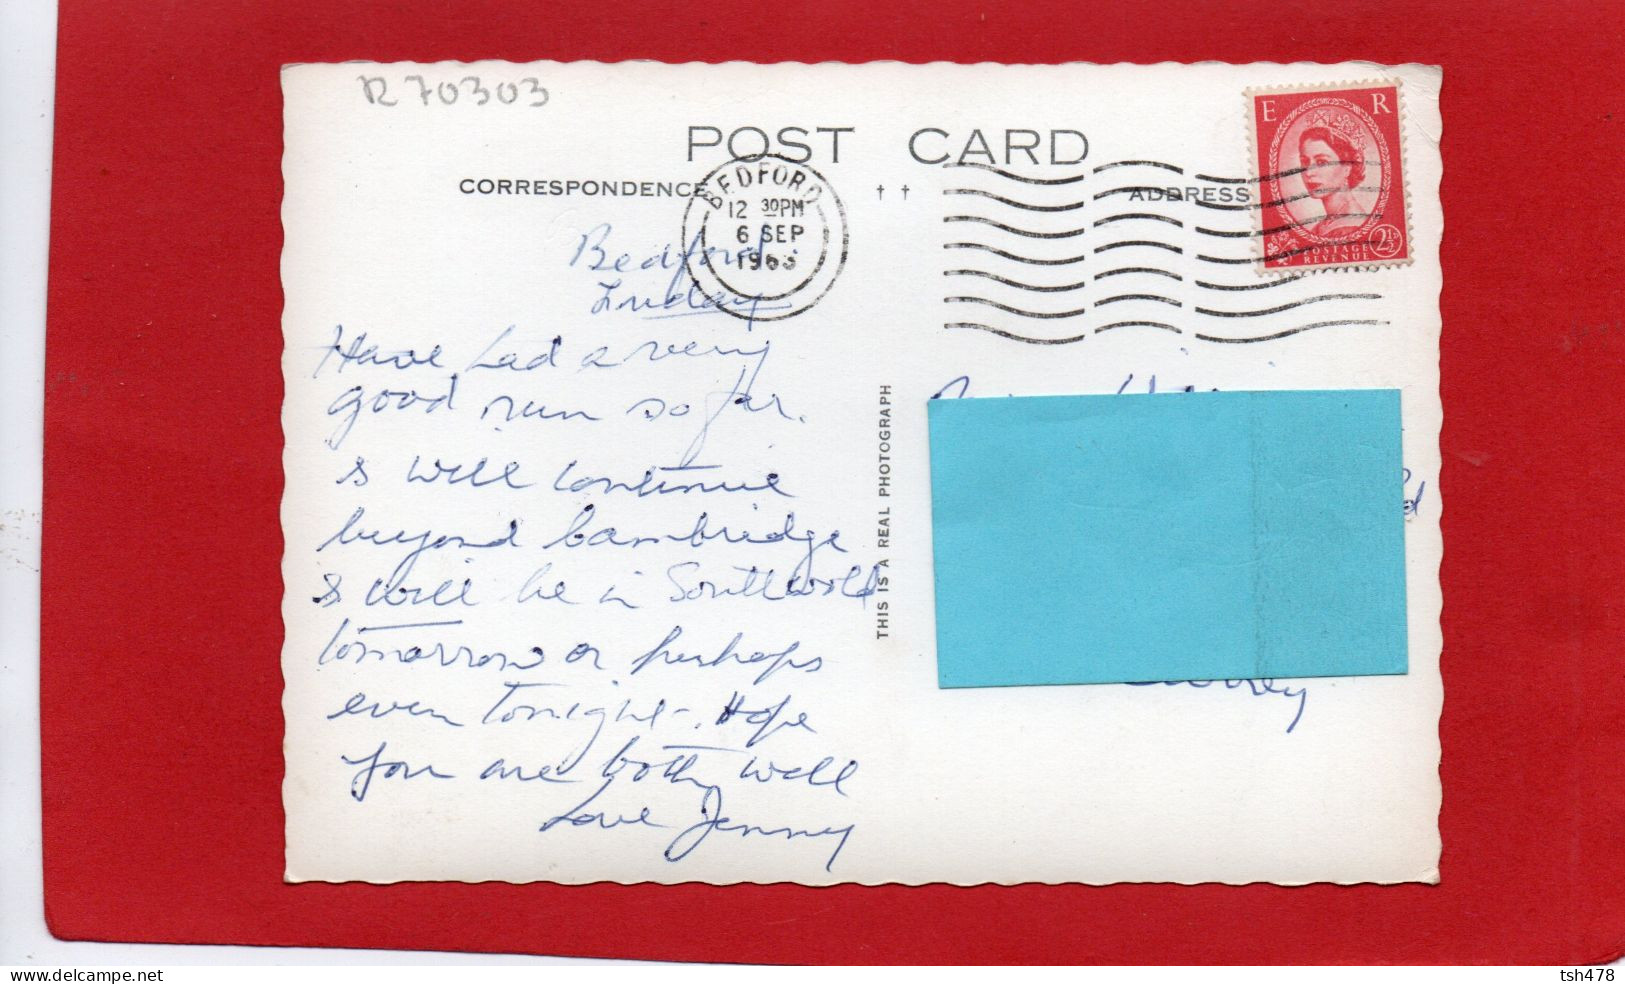 R70303
POST CARD
CORRESPONDENCE
ADDRESS
BEDFORD
12 30PM
6 SEP
1963
E R
POSTAGE
REVENUE
2½D
Bedford.
Friday
Have had a very
good run so far.
& will continue
beyond Cambridge
& will be in Southwold
tomorrow or perhaps
even tonight. Hope
you are both well
Love Jenny
THIS IS A REAL PHOTOGRAPH
Surrey
delcampe.net
tsh478